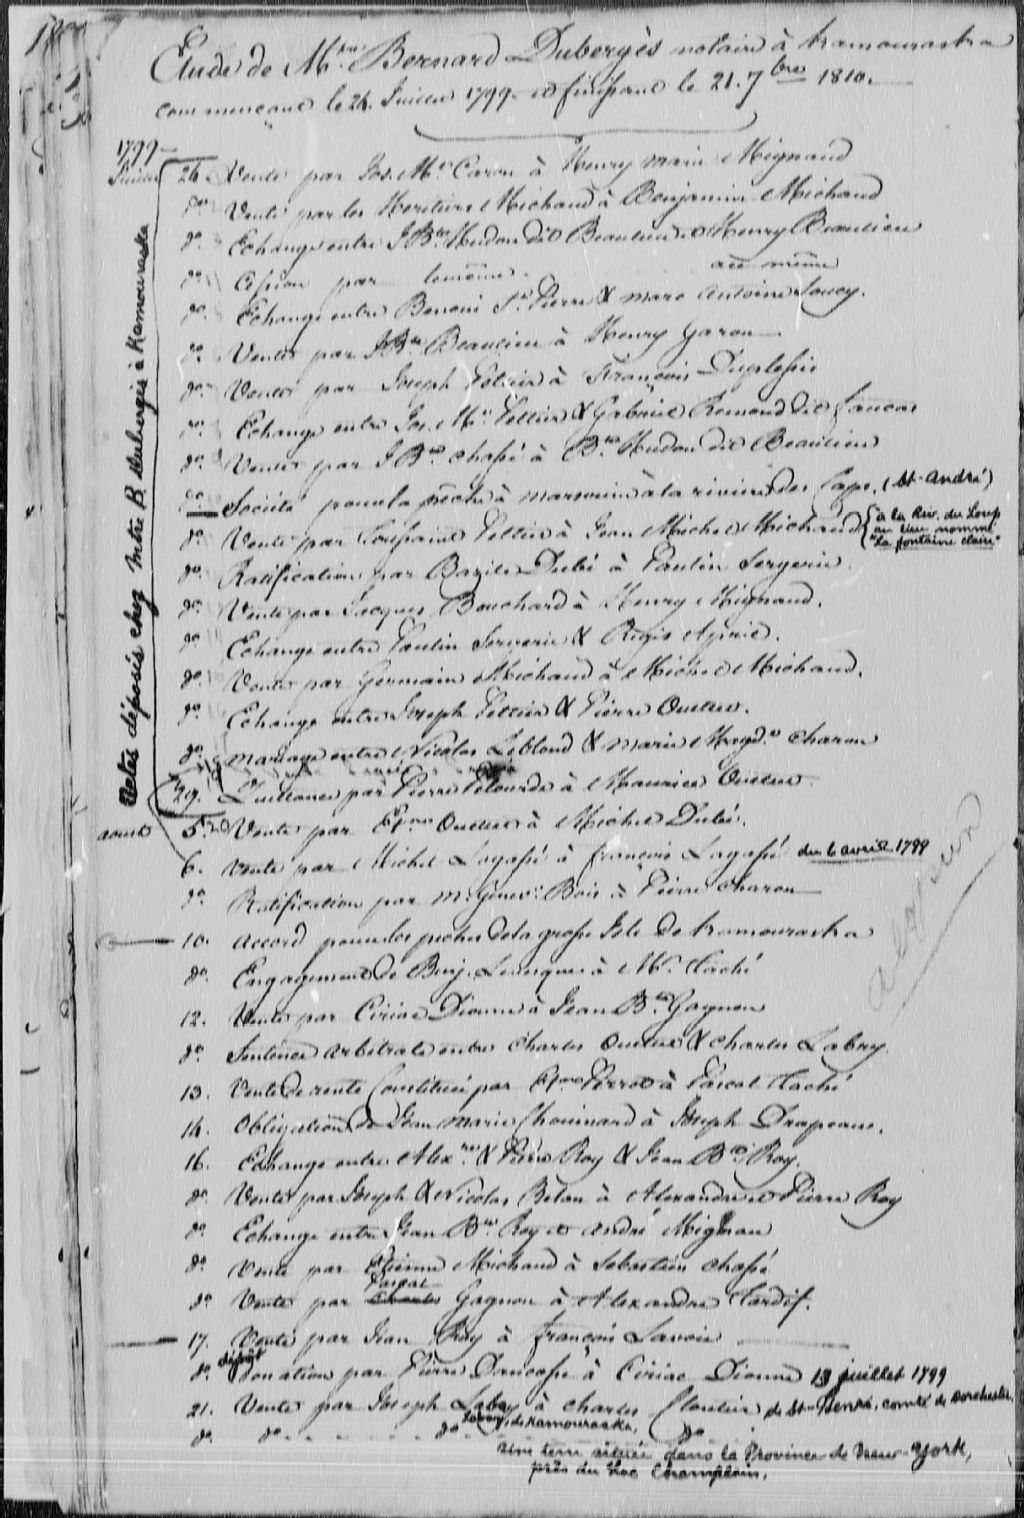 Etude de Mtre Bernard Dubergès notaire à Kamouraska
commençant le 26. Juillet 1799 et finissant le 21. 7bre 1810.
1799
Juillet 26. Vente par Jos. Me Caron à Henry marie Mignaud
do Vente par les Heritiers Michaud à Benjamin Michaud
do Echange entre J. Bte Hudon dit Beaulieu et Henry Beaulieu
do Cession par lemême au même
do Echange entre Benoni St Pierre & marc Antoine Soucy.
do Vente par J Bte Beaulieu à Henry Garon
do Vente par Joseph à François Duplessis
do Echange entre Jos. Me Pettier & Gabriel Remond dit
do Vente par J Bte chassé à Bte Hudon dit Beaulieu
do Société pour la pêche à marsouin à la riviere des Caps, (St-André)
do Vente par Pettier à Jean Michel Michaud { à la Riv. du Loup
au lieu nommé
"La fontaine claire"
do Ratification par Bazile Dubé à Paulin Sergerie.
do Vente par Jacques Bouchard à Henry Mignaud.
do Echange entre Paulin Sergerie & Regis
do Vente par Germain Michaud à Michel Michaud.
do Echange entre Joseph Pettier & Pierre Ouellet.
do mariage entre Nicolas Leblond & marie Magd.e Charon
29. Quittance par Pierre à Maurice Ouellet
aout 5. Vente par Ouellet à Michel Dubé.
6. Vente par Michel Lagassé à françois Lagassé du 6 avril 1799
do Ratification par M. Genev. Bois à Pierre charon
10. Accord pour les peches de la grosse Isle de Kamouraska
do Engagement de Benj. Levesque à Mr. Taché
12. Vente par Ciriac Dionne à Jean Bte Gagnon
do Sentence Arbitrale entre Charles Ouellet & Charles Labry
13. Vente de rente Constituée par Perrot à Pascal Taché
14. Obligation de Jean Marie Chouinard à Joseph Drapeau.
16. Echange entre Alex.re & Pierre Roy & Jean Bte Roy.
do Vente par Joseph & Nicolas à Alexandre et Pierre Roy
do Echange entre Jean Bte Roy et André Mignau
do Vente par Etienne Michaud à Sebastien chassé
Pascal
do Vente par Charles Gagnon à Alexandre Tardif.
17. Vente par Jean Roy à françois Lavoie
dépôt
do Donation par Pierre Dancosse à Ciriac Dionne 13 juillet 1799
21. Vente par Joseph Labry à Charles Cloutier de St-Henri, comté de Dorchester
do do Labry, de Kamouraska, do
Une terre située dans la Province de New-York,
près du Lac Champlain.
Actes déposés chez Mtre B. Dubergès à Kamouraska